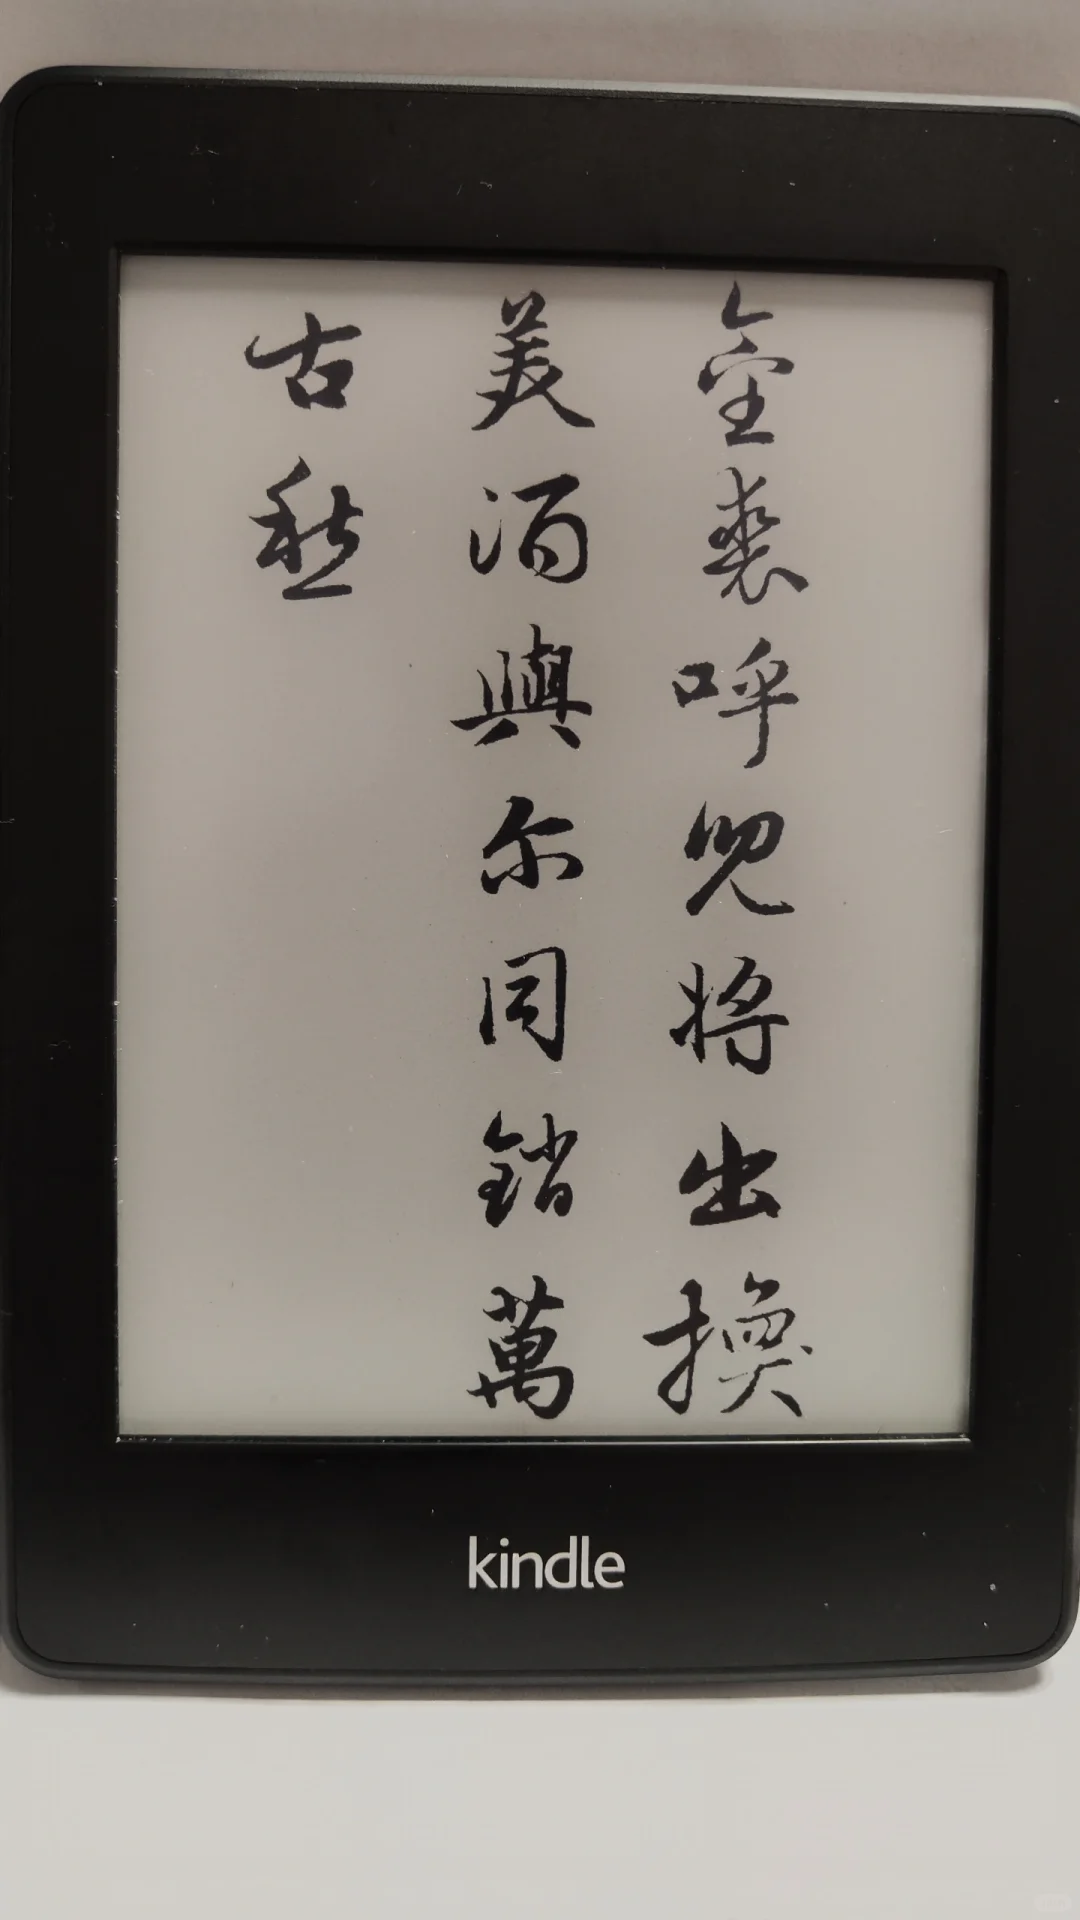 金裘呼兒將出換
美酒與尔同銷萬
古愁
kindle